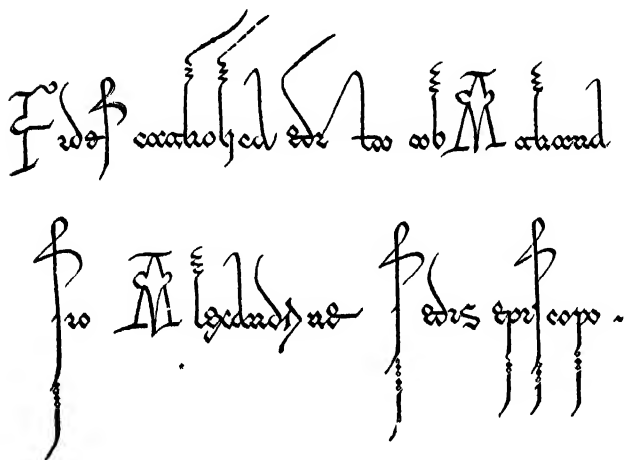 Fides catholica edita ab Athana
sio Alexandrine sedis episcopo.